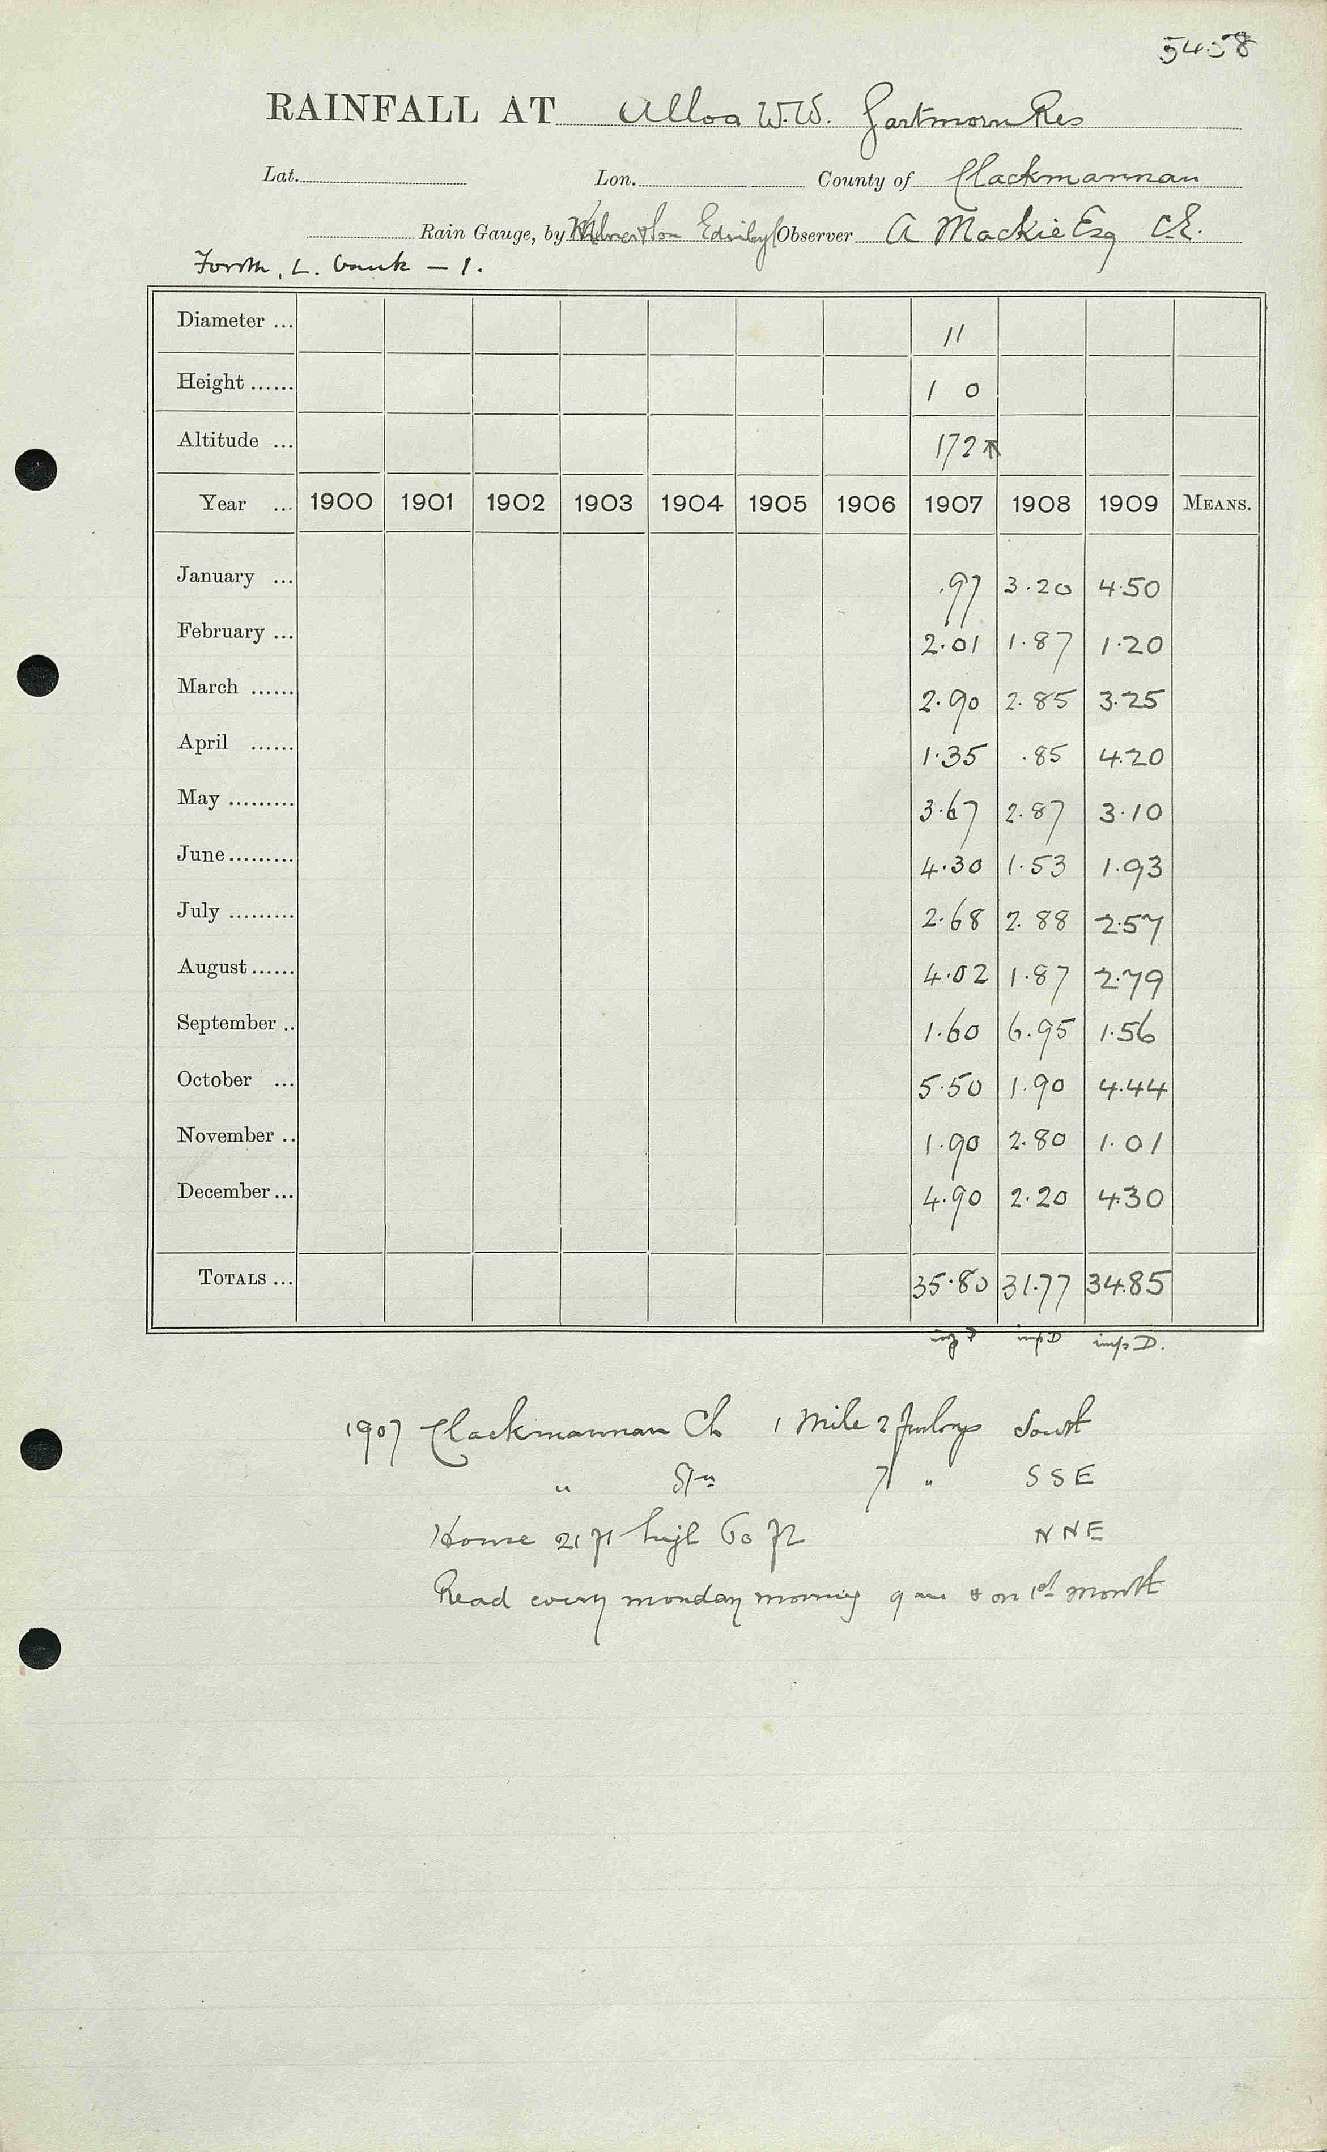 5458
RAINFALL AT Alloa W.W. Gartmorn Res
Lat. Lon. County of Clackmannan
Rain Gauge, by Observer A Mackie Esq C.E.
Forth, L. bank - 1.
Diameter ... 11
Height ...... 1 0
Altitude ... 172
Year ... 1900 1901 1902 1903 1904 1905 1906 1907 1908 1909 MEANS.
January ... .97 3.20 4.50
February ... 2.01 1.87 1.20
March ...... 2.90 2.85 3.25
April ...... 1.35 .85 4.20
May ......... 3.67 2.87 3.10
June ......... 4.30 1.53 1.93
July ......... 2.68 2.88 2.57
August ...... 4.02 1.87 2.79
September .. 1.60 6.95 1.56
October ... 5.50 1.90 4.44
November .. 1.90 2.80 1.01
December ... 4.90 2.20 4.30
TOTALS ... 35.80 31.77 34.85
1907 Clackmannan Ch 1 Mile 2 furlongs South
" Stn 7 " SSE
House 21 ft high 60 ft NNE
Read every monday morning 9 am & on 1st month